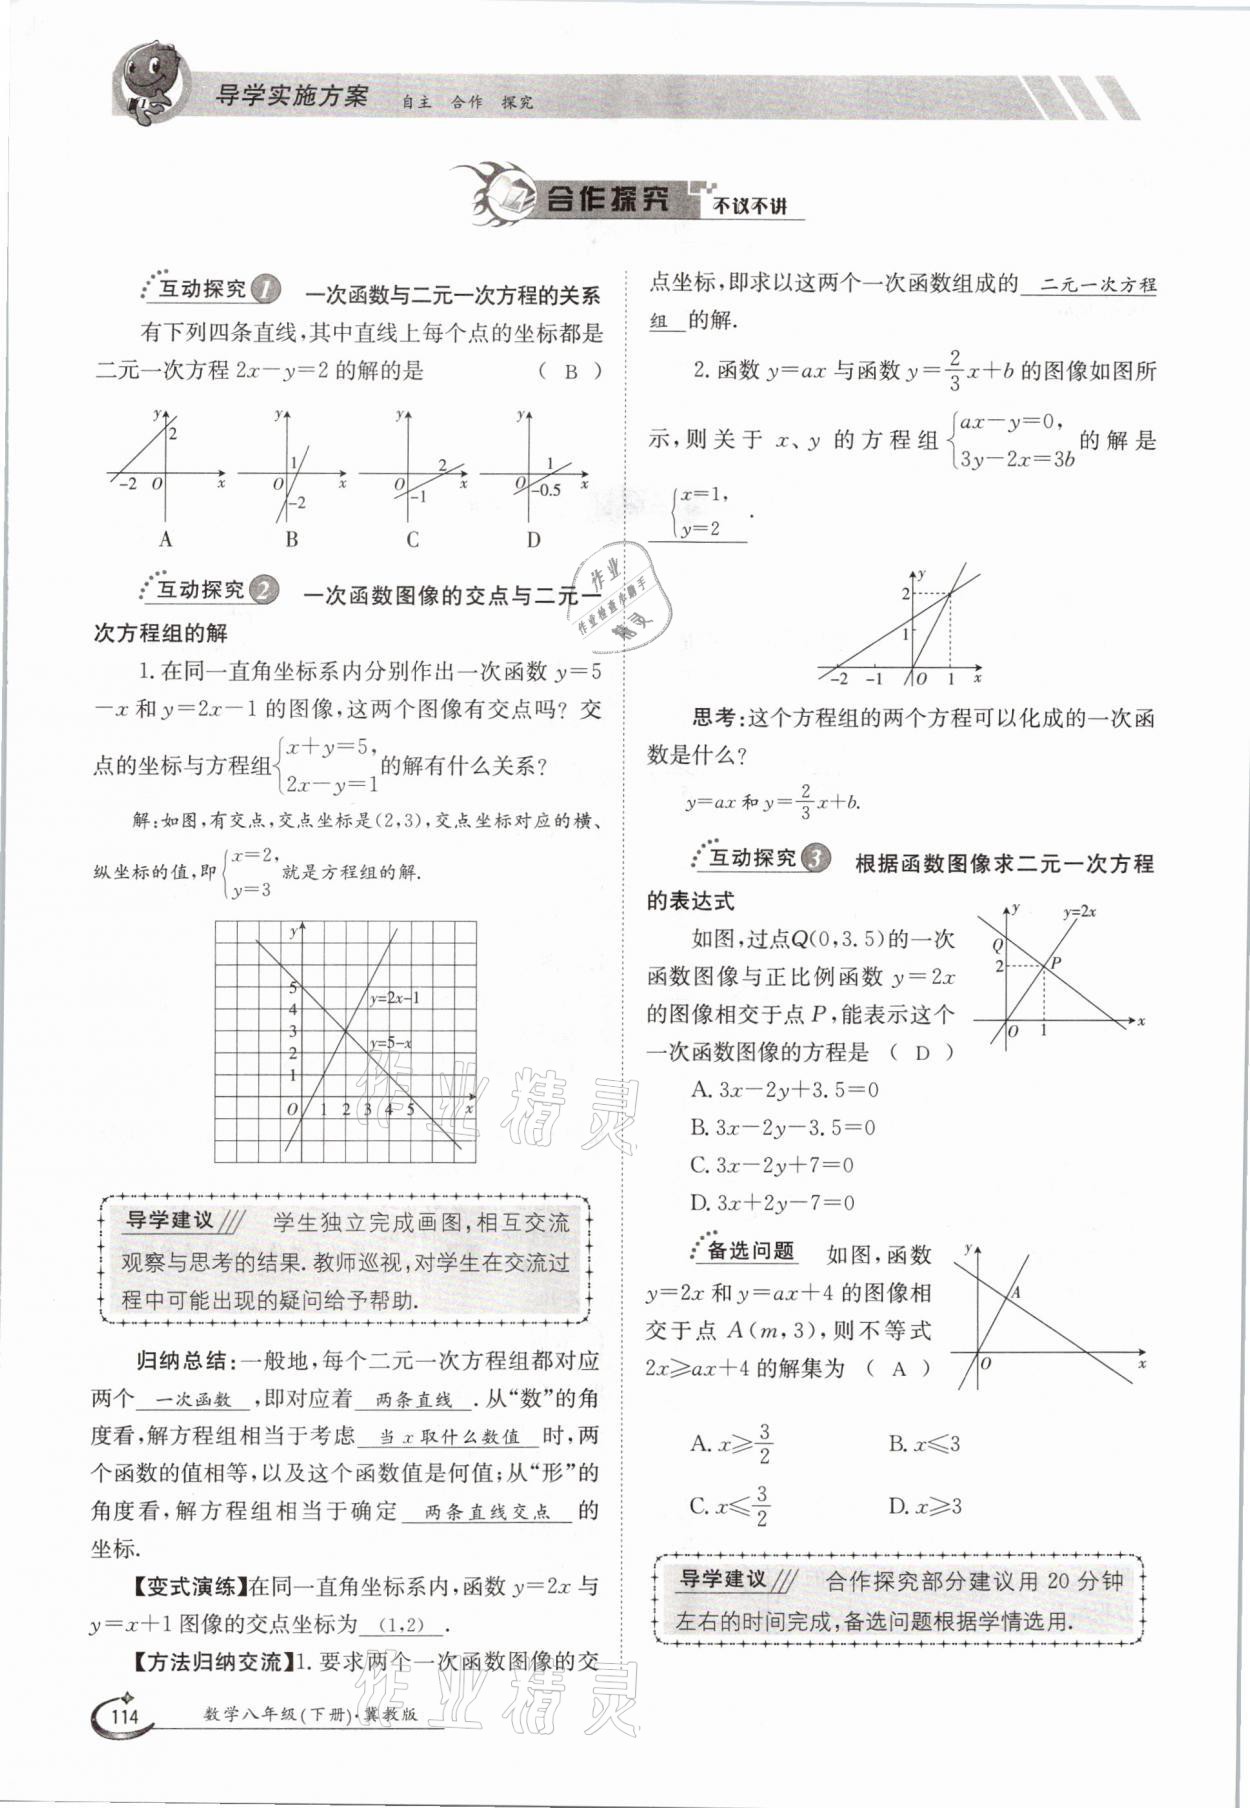 导学实施方案 自主 合作 探究
合作探究 不议不讲
互动探究1 一次函数与二元一次方程的关系
有下列四条直线,其中直线上每个点的坐标都是
二元一次方程 2x-y=2 的解的是 ( B )
y 2 -2 O x
y 1 O -2 x
y 2 O -1 x
y 1 O -0.5 x
A B C D
互动探究2 一次函数图像的交点与二元一
次方程组的解
1. 在同一直角坐标系内分别作出一次函数 y=5
-x 和 y=2x-1 的图像,这两个图像有交点吗? 交
点的坐标与方程组{x+y=5, 2x-y=1 的解有什么关系?
解:如图,有交点,交点坐标是(2,3),交点坐标对应的横、
纵坐标的值,即{x=2, y=3 就是方程组的解.
y
5
4 y=2x-1
3
2 y=5-x
1
O 1 2 3 4 5 x
导学建议 学生独立完成画图,相互交流
观察与思考的结果. 教师巡视,对学生在交流过
程中可能出现的疑问给予帮助.
归纳总结:一般地,每个二元一次方程组都对应
两个 一次函数 ,即对应着 两条直线 . 从“数”的角
度看,解方程组相当于考虑 当 x 取什么数值 时,两
个函数的值相等,以及这个函数值是何值;从“形”的
角度看,解方程组相当于确定 两条直线交点 的
坐标.
【变式演练】在同一直角坐标系内,函数 y=2x 与
y=x+1 图像的交点坐标为 (1,2) .
【方法归纳交流】1. 要求两个一次函数图像的交
点坐标,即求以这两个一次函数组成的 二元一次方程
组 的解.
2. 函数 y=ax 与函数 y=2/3x+b 的图像如图所
示,则关于 x、y 的方程组{ax-y=0, 3y-2x=3b 的解是
{x=1, y=2 .
y
2
1
-2 -1 O 1 x
思考:这个方程组的两个方程可以化成的一次函
数是什么?
y=ax 和 y=2/3x+b.
互动探究3 根据函数图像求二元一次方程
的表达式
如图,过点Q(0,3.5)的一次
函数图像与正比例函数 y=2x
的图像相交于点 P,能表示这个
一次函数图像的方程是 ( D )
y y=2x
Q
2 P
O 1 x
A. 3x-2y+3.5=0
B. 3x-2y-3.5=0
C. 3x-2y+7=0
D. 3x+2y-7=0
备选问题 如图,函数
y=2x 和 y=ax+4 的图像相
交于点 A(m,3),则不等式
2x≥ax+4 的解集为 ( A )
y A O x
A. x≥3/2 B. x≤3
C. x≤3/2 D. x≥3
导学建议 合作探究部分建议用 20 分钟
左右的时间完成,备选问题根据学情选用.
114 数学八年级(下册)·冀教版
作业
作业检查小助手
精灵
作业精灵
作业精灵